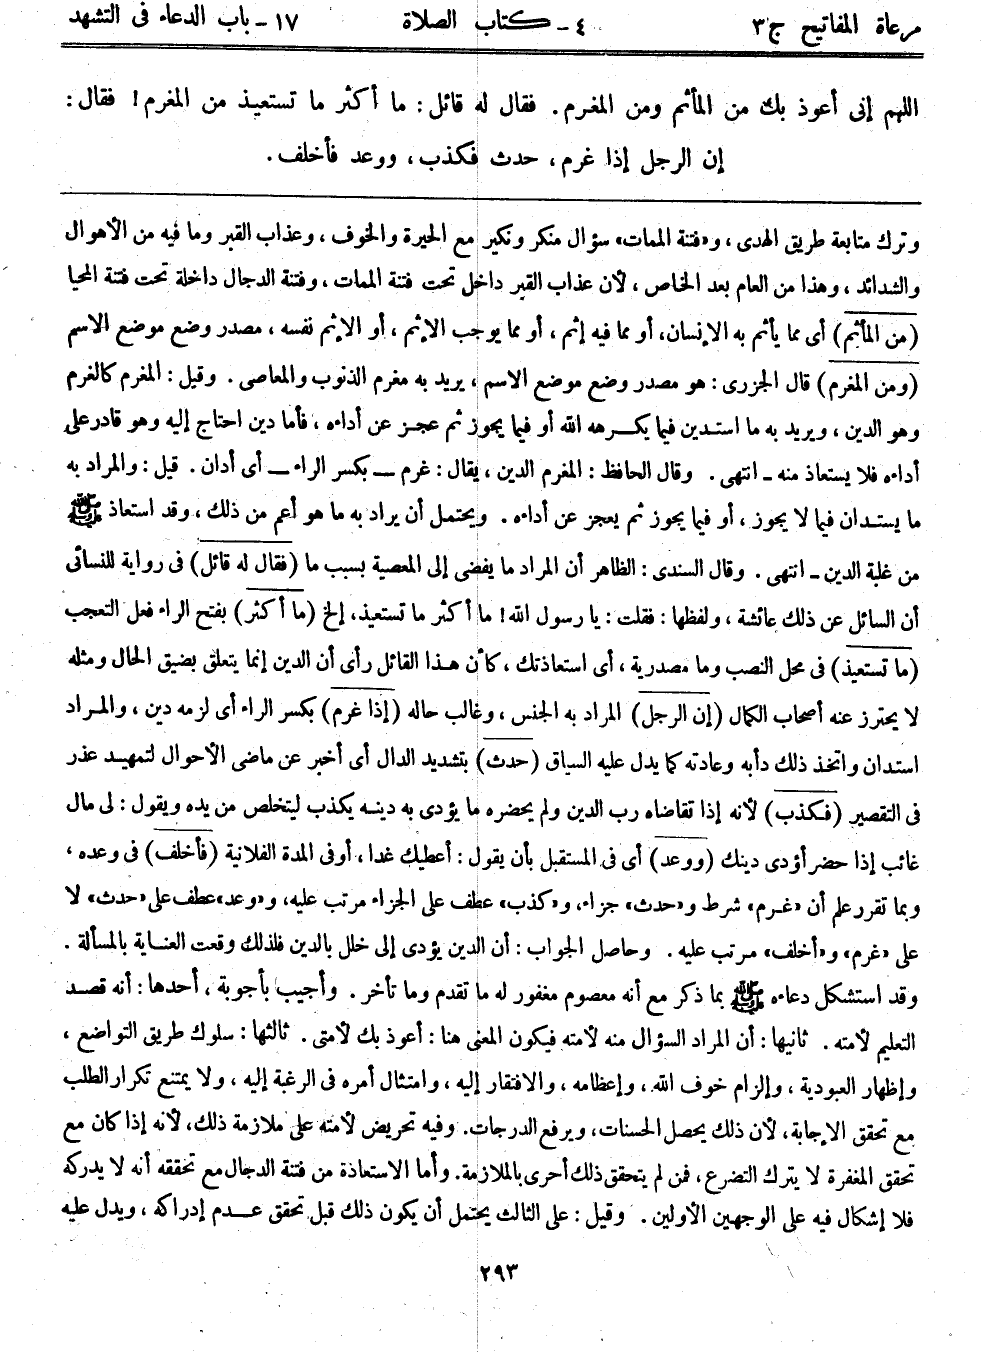 مرعاة المفاتيح ج ٣ ٤ - كتاب الصلاة ١٧ - باب الدعاء فى التشهد
اللهم إنى أعوذ بك من المأثم ومن المغرم. فقال له قائل: ما أكثر ما تستعيذ من المغرم! فقال:
إن الرجل إذا غرم، حدث فكذب، ووعد فأخلف.
وترك متابعة طريق الهدى، و«فتنة الممات» سؤال منكر ونكير مع الحيرة والخوف، وعذاب القبر وما فيه من الأهوال
والشدائد، وهذا من العام بعد الخاص، لأن عذاب القبر داخل تحت فتنة الممات، وفتنة الدجال داخلة تحت فتنة المحيا
(من المأثم) أى مما يأثم به الإنسان، أو مما فيه إثم، أو مما يوجب الإثم، أو الإثم نفسه، مصدر وضع موضع الاسم
(ومن المغرم) قال الجزرى: هو مصدر وضع موضع الاسم، يريد به مغرم الذنوب والمعاصى. وقيل: المغرم كالغرم
وهو الدين، ويريد به ما استدين فيما يكرهه الله أو فيما يجوز ثم عجز عن أداءه، فأما دين احتاج إليه وهو قادر على
أداءه فلا يستعاذ منه - انتهى. وقال الحافظ: المغرم الدين، يقال: غرم - بكسر الراء - أى أدان. قيل: والمراد به
ما يستدان فيما لا يجوز، أو فيما يجوز ثم يعجز عن أداءه. ويحتمل أن يراد به ما هو أعم من ذلك، وقد استعاذ ﷺ
من غلبة الدين - انتهى. وقال السندى: الظاهر أن المراد ما يفضى إلى المعصية بسبب ما (فقال له قائل) فى رواية للنسائى
أن السائل عن ذلك عائشة، ولفظها: فقلت: يا رسول الله! ما أكثر ما تستعيذ، إلخ (ما أكثر) بفتح الراء فعل التعجب
(ما تستعيذ) فى محل النصب وما مصدرية، أى استعاذتك، كأن هذا القائل رأى أن الدين إنما يتعلق بضيق الحال ومثله
لا يحترز عنه أصحاب الكمال (إن الرجل) المراد به الجنس، وغالب حاله (إذا غرم) بكسر الراء أى لزمه دين، والمراد
استدان واتخذ ذلك دأبه وعادته كما يدل عليه السياق (حدث) بتشديد الدال أى أخبر عن ماضى الأحوال لتمهيد عذر
فى التقصير (فكذب) لأنه إذا تقاضاه رب الدين ولم يحضره ما يؤدى به دينه يكذب ليتخلص من يده ويقول: لى مال
غائب إذا حضر أؤدى دينك (ووعد) أى فى المستقبل بأن يقول: أعطيك غدا، أو فى المدة الفلانية (فأخلف) فى وعده،
وبما تقرر علم أن «غرم» شرط و«حدث» جزاء، و«كذب» عطف على الجزاء مرتب عليه، و«وعد» عطف على «حدث» لا
على «غرم» و«أخلف» مرتب عليه. وحاصل الجواب: أن الدين يؤدى إلى خلل بالدين فلذلك وقعت العناية بالمسألة.
وقد استشكل دعاءه ﷺ بما ذكر مع أنه معصوم مغفور له ما تقدم وما تأخر. وأجيب بأجوبة، أحدها: أنه قصد
التعليم لأمته. ثانيها: أن المراد السؤال منه لأمته فيكون المعنى هنا: أعوذ بك لأمتى. ثالثها: سلوك طريق التواضع،
وإظهار العبودية، وإلزام خوف الله، وإعظامه، والافتقار إليه، وامتثال أمره فى الرغبة إليه، ولا يمتنع تكرار الطلب
مع تحقق الإجابة، لأن ذلك يحصل الحسنات، ويرفع الدرجات. وفيه تحريض لأمته على ملازمة ذلك، لأنه إذا كان مع
تحقق المغفرة لا يترك التضرع، فمن لم يتحقق ذلك أحرى بالملازمة. وأما الاستعاذة من فتنة الدجال مع تحققه أنه لا يدركه
فلا إشكال فيه على الوجهين الأولين. وقيل: على الثالث يحتمل أن يكون ذلك قبل تحقق عدم إدراكه، ويدل عليه
٢٩٣